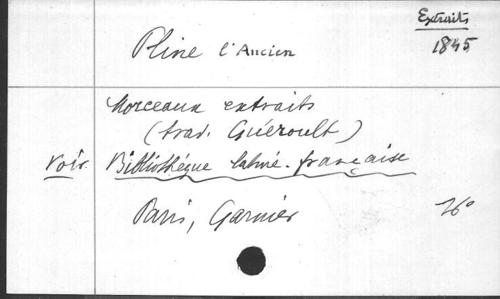 Extraits
1845
Pline l'Ancien
Morceaux extraits
(trad. Guéroult)
voir Bibliothéque latine-française
Paris, Garnier 16°